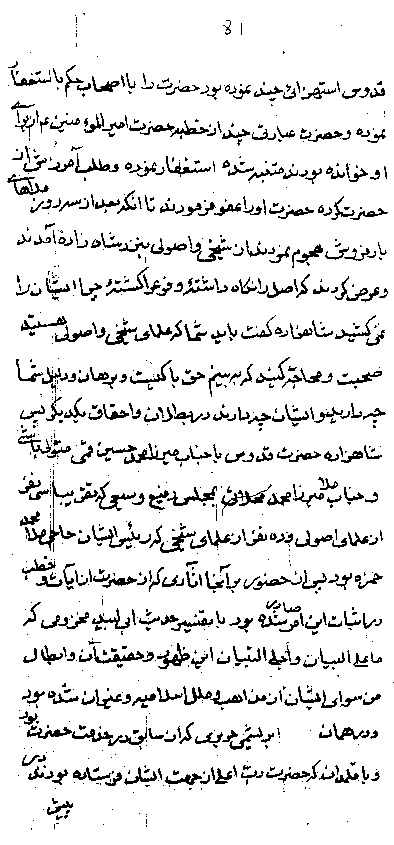 81
قدوس استهزائی چند نموده بود حضرت را با اصحاب حکم باستغفار
نموده و حضرت عبارتی چند از خطبه حضرت امیر المؤمنین برای
او خوانده بودند متنبه شده استغفار نموده و طلب آمرزش از
حضرت کرده حضرت او را عفو فرمودند تا آنکه بعد از سه روز ملاهای
بارفروش هجوم نمودند از شیخی و اصولی بنزد شاهزاده آمدند
و عرض کردند که اصل را نگاه داشتهٔ و فرع را کشتهٔ چرا ایشان را
نمی کشید شاهزاده گفت باید شما که علمای شیخی و اصولی هستید
صحبت و محاجه کنید که ببینم حق با کیست و برهان و دلیل شما
چه دارید و ایشان چه دارند در بطلان و احقاق یکدیگر پس
شاهزاده حضرت قدوس با جناب میرزا محمد حسین قمی متولی
و جناب ملا میرزا محمد بمجلس و سیعی که تقریبا سی نفر
از علمای اصولی و ده نفر از علمای شیخی که رئیس ایشان حاجی ملا محمد
حمزه بود پس از حضور بر آنجا آثاری که از حضرت از آیات و خطب
در اثبات این امر صادر شده بود با تفسیر حدیث ابی لبید مخزومی که
ما علی البیان و اجلی التبیان این ظهور و حقیقت آن و ابطال
من سوای ایشان از مذاهب و ملل اسلامیه و عنوان شده بود
و در همان ابریشمی که از سابق در خدمت حضرت بود
و با قلمدان که حضرت رب اعلی از جهت ایشان فرستاده بودند در
پیش